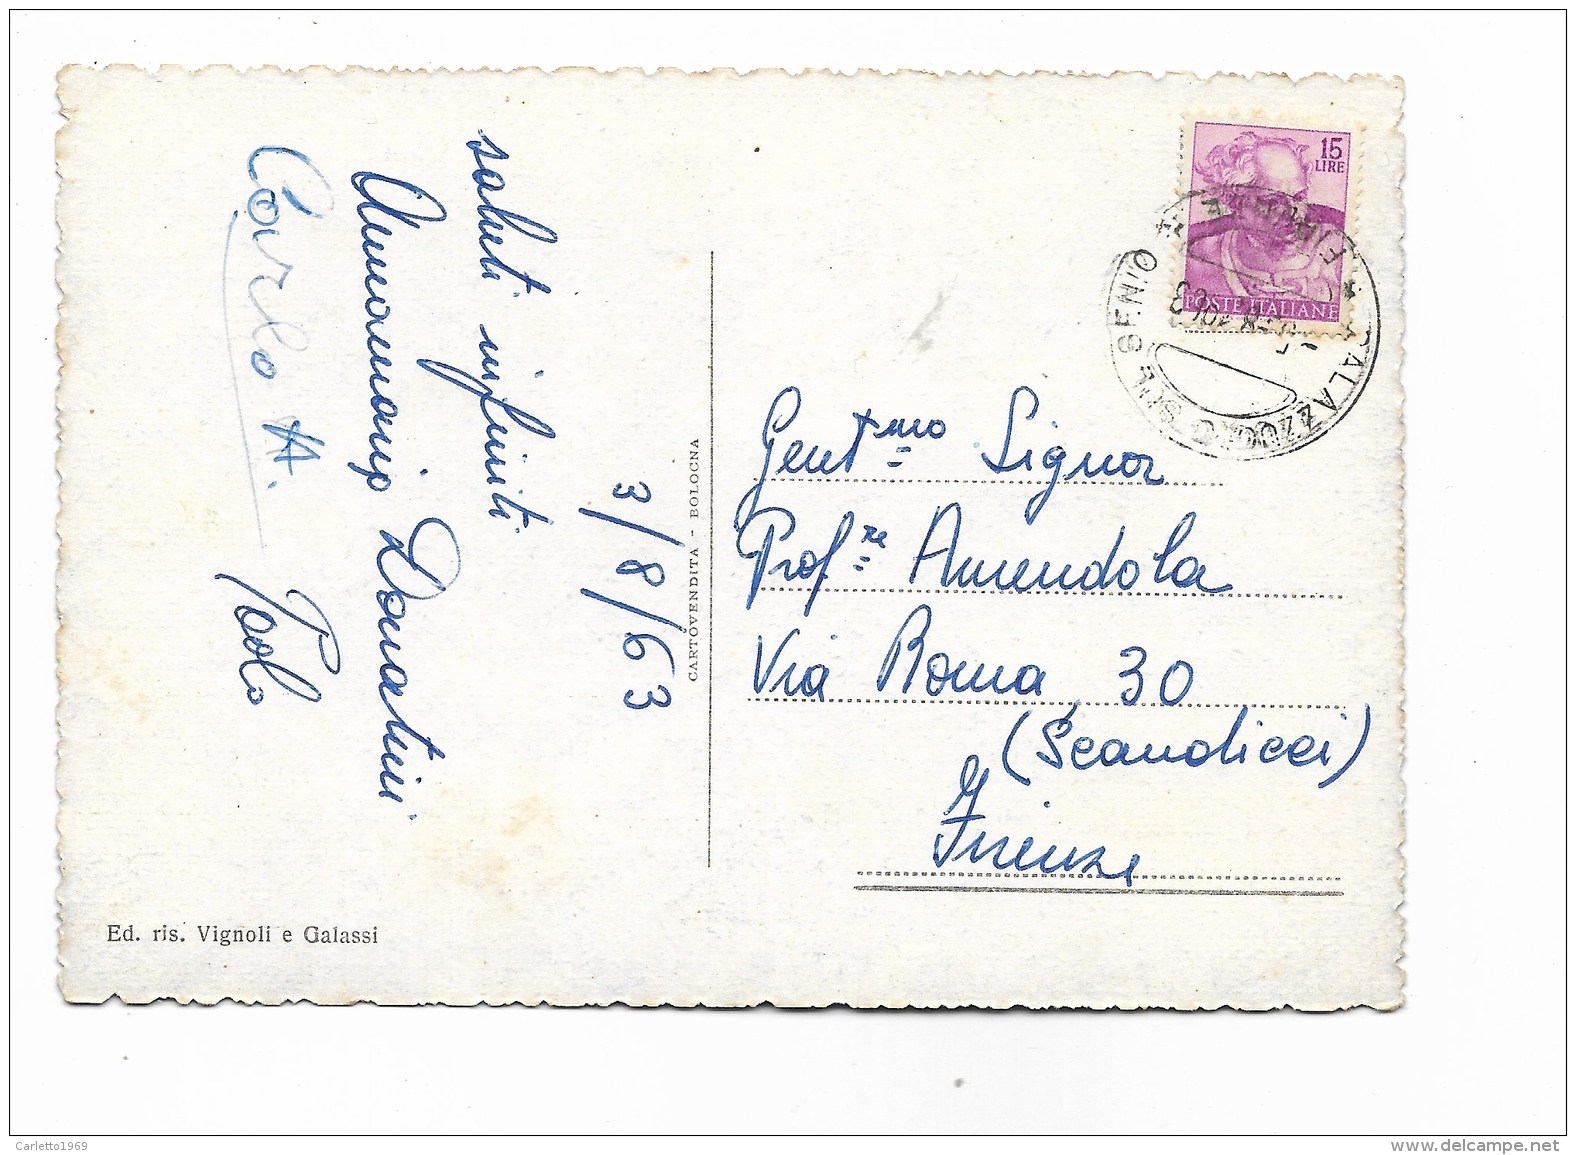 saluti infiniti
Donatini
Carlo A.
Paolo
3/8/63
CARTOVENDITA - BOLOGNA
Ed. ris. Vignoli e Galassi
15
LIRE
POSTE ITALIANE
PALAZZUOLO SUL SENIO
FIRENZE
Gent.mo Signor
Prof.re Amendola
Via Roma 30
(Scandicci)
Firenze
Carletto1969
delcampe.net